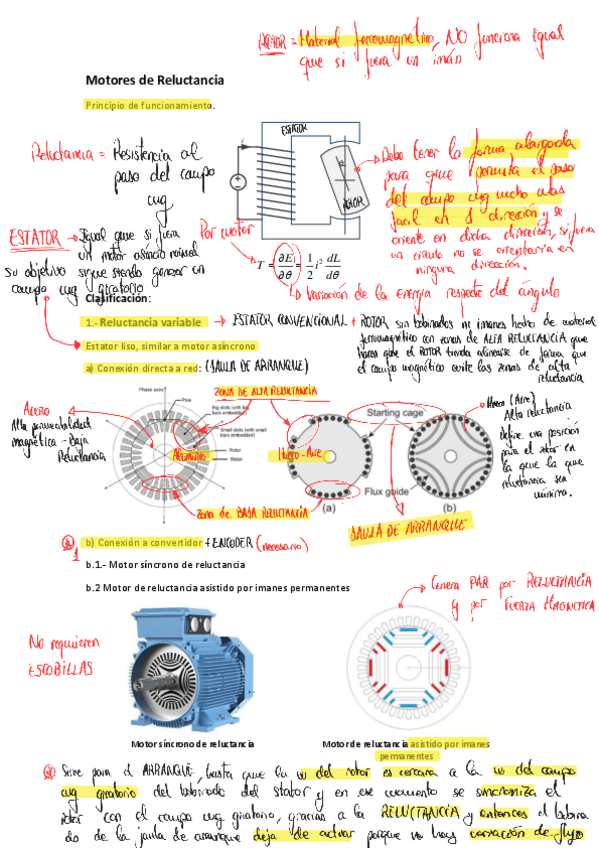 ROTOR = Material ferromagnético, NO funciona igual
que si fuera un imán
Motores de Reluctancia
Principio de funcionamiento.
ESTATOR
ROTOR
Reluctancia = Resistencia al
paso del campo
mg
Debe tener la forma alargada
para que permita el paso
del campo mg mucho más
facil en 1 dirección y se
oriente en dicha dirección, si fuera
un circulo no se orientaria en
ninguna dirección.
ESTATOR → Igual que si fuera
un motor asincro normal
su objetivo sigue siendo generar un
campo mg giratorio
Par motor
T = ∂E/∂θ = 1/2 i² dL/dθ
Variación de la energía respecto del ángulo
Clasificación:
1.- Reluctancia variable → ESTATOR CONVENCIONAL + ROTOR sin bobinados ni imanes hecho de material
ferromagnético con zonas de ALTA RELUCTANCIA que
hacen que el ROTOR tienda alinearse de forma que
el campo magnético evite las zonas de alta
reluctancia
Estator liso, similar a motor asíncrono
a) Conexión directa a red: (JAULA DE ARRANQUE)
ZONA DE ALTA RELUCTANCIA
Acero
Alta permeabilidad
magnética - Baja
Reluctancia
Phase axes
Pole
Big slots (with big
bars embedded)
Small slots (with small
bars embedded)
Rotor
Stator
Aluminio
Hueco - Aire
Starting cage
Flux guide
(a)
(b)
Hueco (Aire)
Alta reluctancia
Define una posición
para el rotor en
la que la
reluctancia sea
mínima.
ZONA DE BAJA RELUCTANCIA
JAULA DE ARRANQUE
b) Conexión a convertidor + ENCODER (necesario)
b.1.- Motor síncrono de reluctancia
b.2 Motor de reluctancia asistido por imanes permanentes
Genera PAR por RELUCTANCIA
y por FUERZA MAGNETICA
No requieren
ESCOBILLAS
Motor síncrono de reluctancia
Motor de reluctancia asistido por imanes
permanentes
Sirve para el ARRANQUE, hasta que la w del rotor es cercana a la w del campo
mg giratorio del bobinado del stator y en ese momento se sincroniza el
rotor con el campo mg giratorio, gracias a la RELUCTANCIA y entonces el bobina
do de la jaula de arranque deja de actuar porque no hay variación de flujo